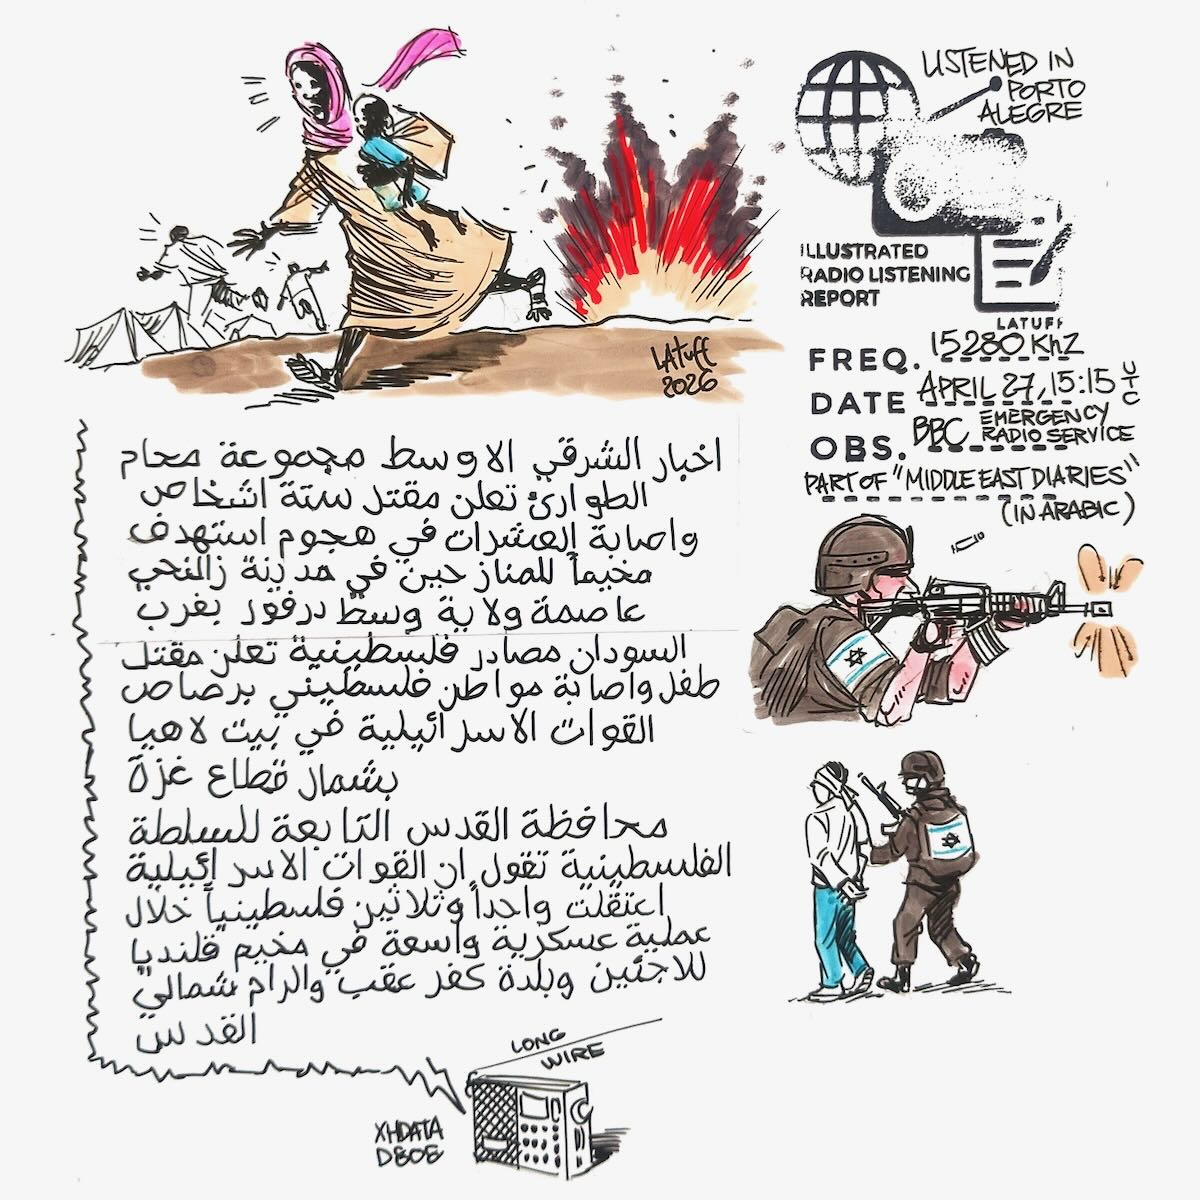 LISTENED IN
PORTO
ALEGRE
ILLUSTRATED
RADIO LISTENING
REPORT
LATUFF
FREQ. 15280 KHZ
DATE APRIL 27, 15:15 UTC
OBS. BBC EMERGENCY
RADIO SERVICE
PART OF "MIDDLE EAST DIARIES"
(IN ARABIC)
LATUFF
2026
اخبار الشرقي الاوسط مجموعة محام
الطوارئ تعلن مقتل ستة اشخاص
واصابة العشرات في هجوم استهدف
مخيماً للمنازحين في مدينة زالنجي
عاصمة ولاية وسط درفور بغرب
السودان مصادر فلسطينية تعلن مقتل
طفل واصابة مواطن فلسطيني برصاص
القوات الاسرائيلية في بيت لاهيا
بشمال قطاع غزة
محافظة القدس التابعة للسلطة
الفلسطينية تقول ان القوات الاسرائيلية
اعتقلت واحداً وثلاثين فلسطينياً خلال
عملية عسكرية واسعة في مخيم قلنديا
للاجئين وبلدة كفر عقب والرام شمالي
القدس
LONG
WIRE
XHDATA
D808